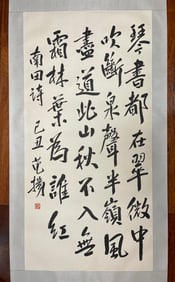 琴書都在翠微中
吹斷泉聲半嶺風
盡道此山秋不入無
霜林葉為誰紅
南田詩 己丑 范揚